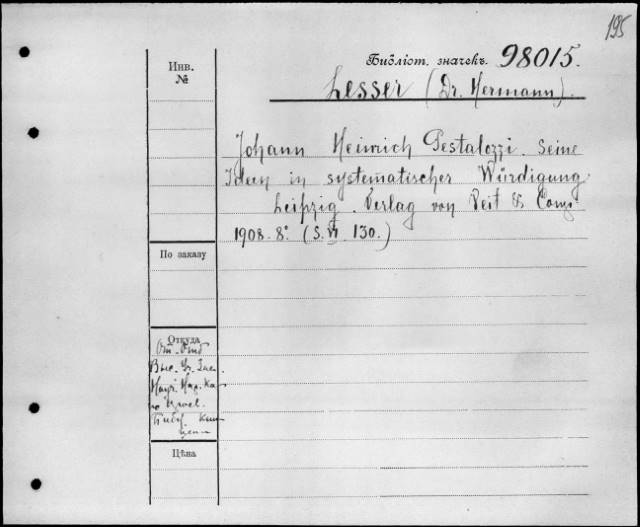 195
Инв.
№
Библіот. значекъ. 98015.
Lesser (Dr. Hermann).
Johann Heinrich Pestalozzi. Seine
Ideen in systematischer Würdigung
Leipzig. Verlag von Veit & Comp
1908. 8° (S. VI. 130.)
По заказу
Откуда
Цѣна